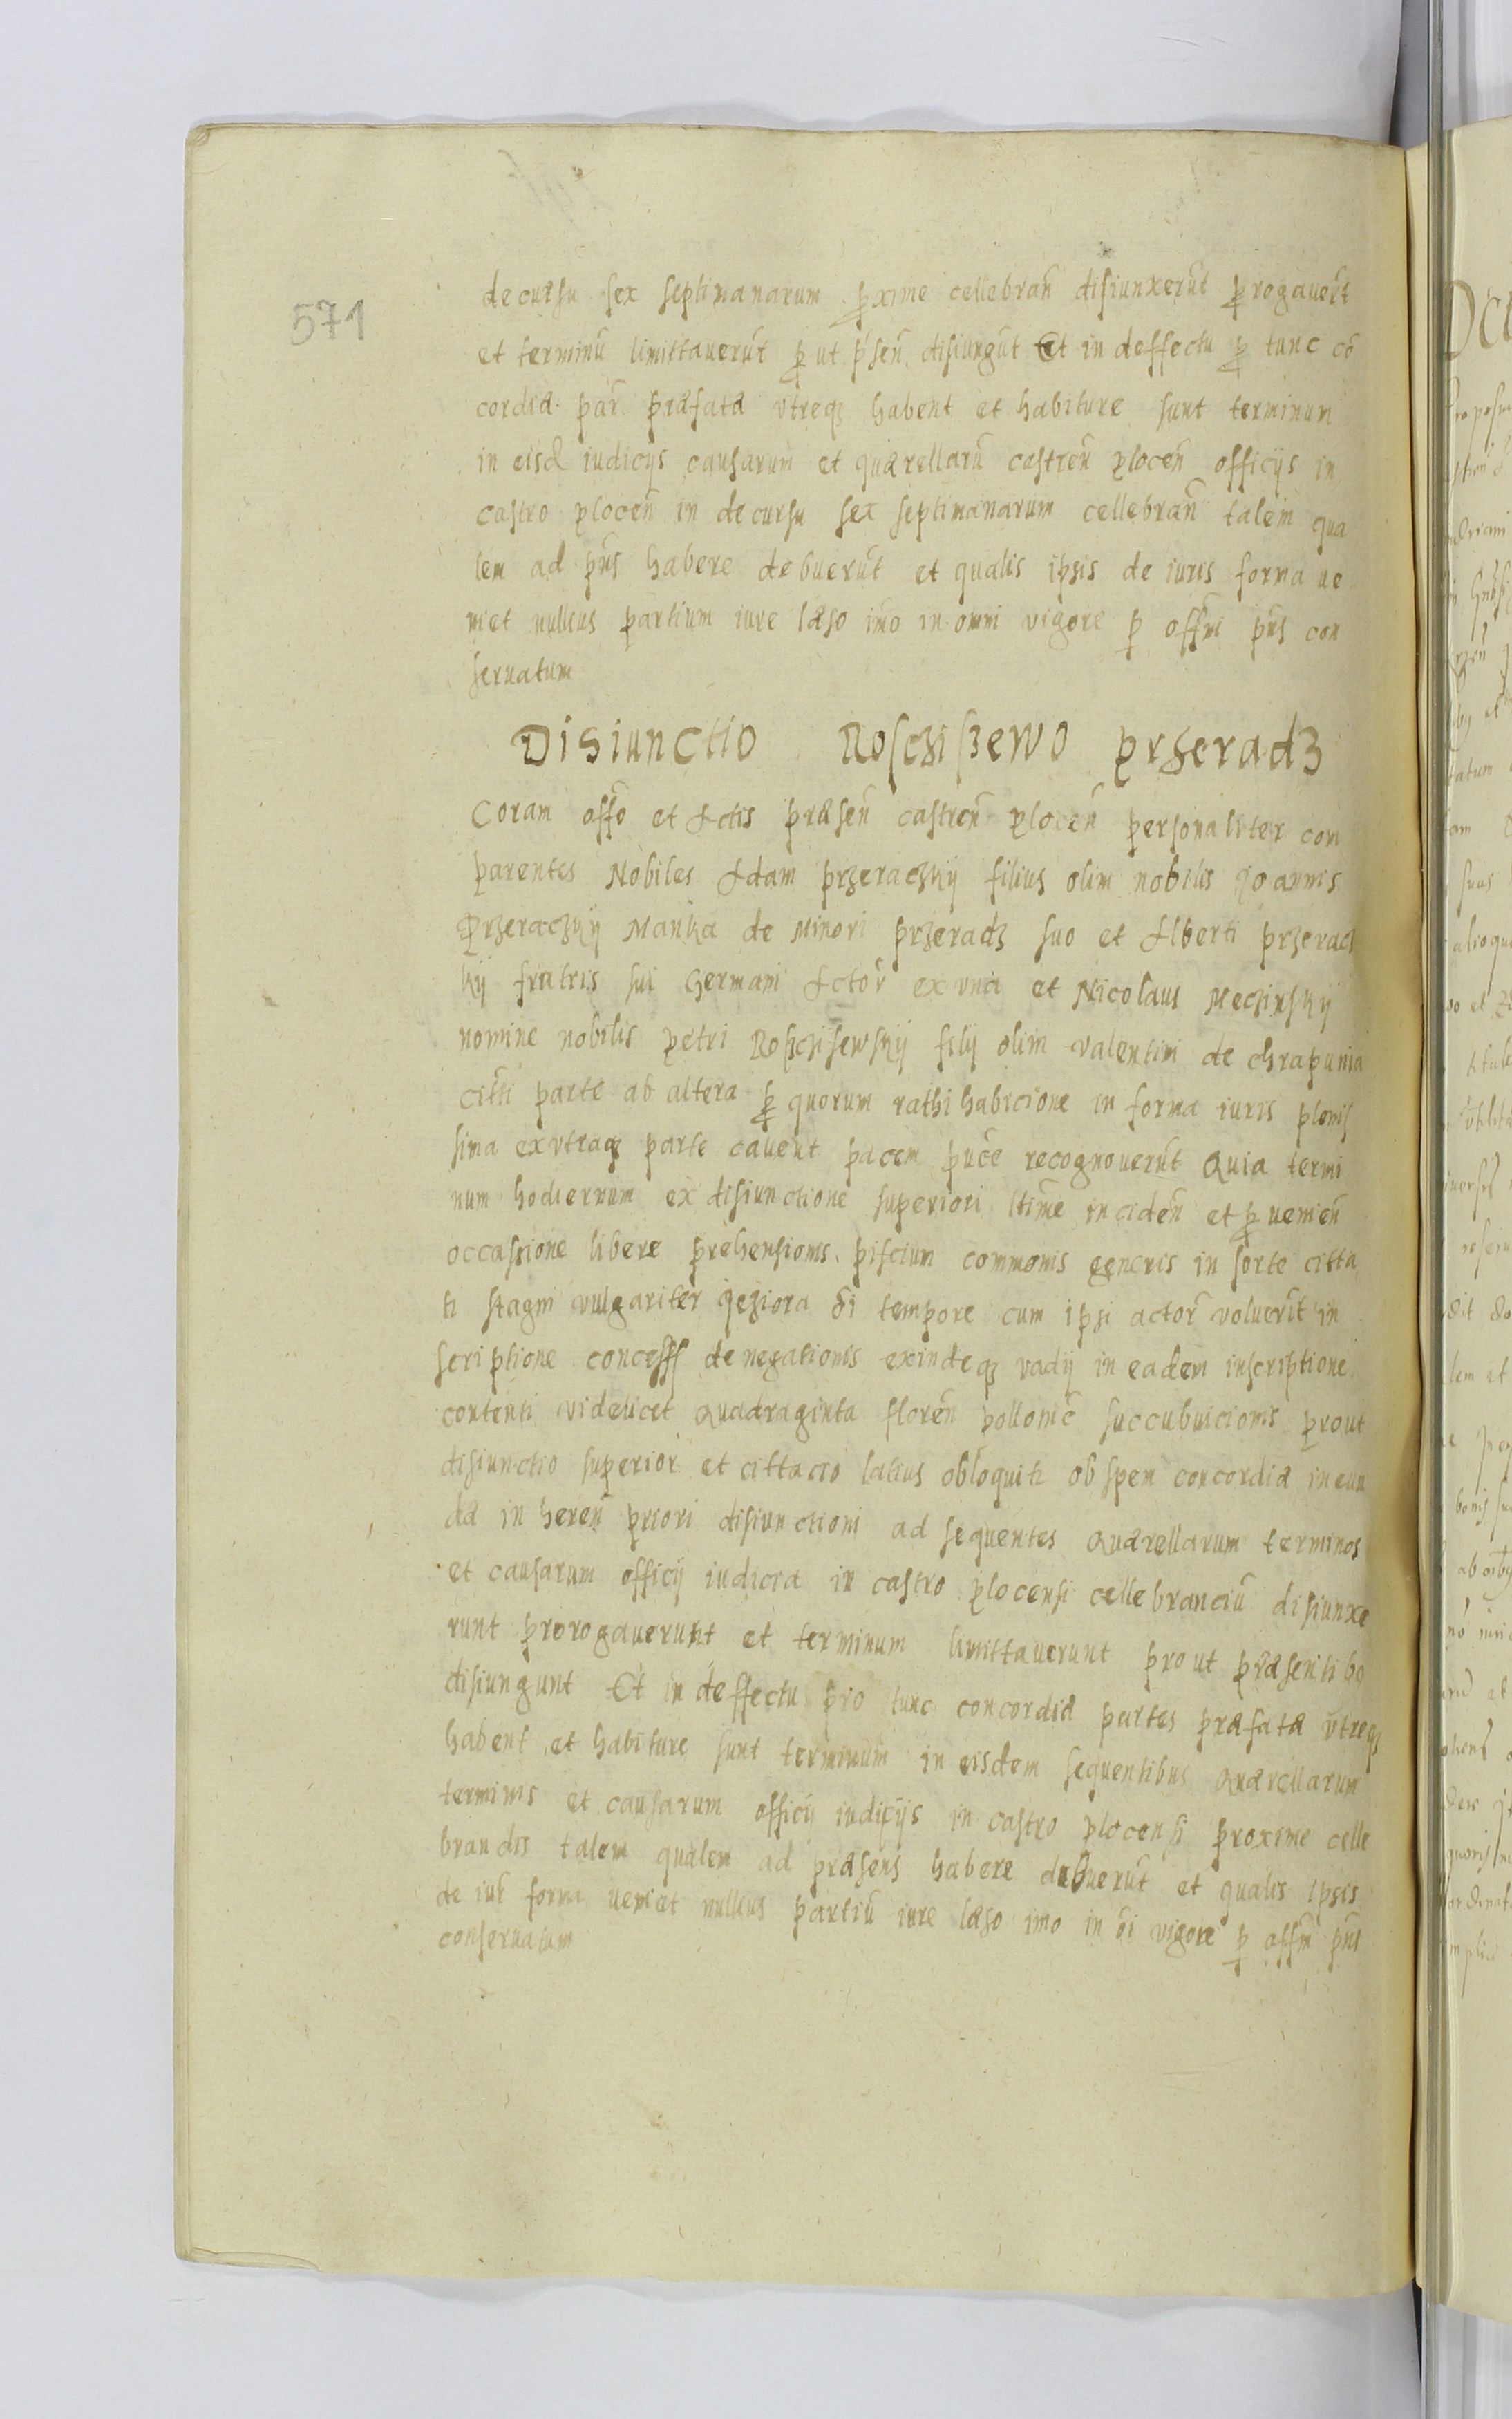 571
decursu sex septimanarum ꝓxime cellebrañ disiunxerūt ꝓrogauerūt
et terminū limittauerūt ꝓut p̄señ disiungūt Et in deffectu ꝓ tunc cō
cordiæ par̃ præfatæ vtreqꝫ habent et habiture sunt terminum
in eisd iudicijs causarum et quærellarū castreñ ploceñ officijs in
castro ploceñ in decursu sex septimanarum cellebrañ talem qua
lem ad p̄ns habere debuerūt et qualis ipsis de iuris forma ue
niet nullius partium iure læso imo in omni vigore ꝑ offm p̄ns con
seruatum
Disiunctio Roschiszewo przeradz
Coram offo et Actis præseñ castreñ ploceñ personaliter com
parentes Nobiles Adam przeraczkÿ filius olim nobilis Joannis
Przeraczkÿ Manka de Minori przeradz suo et Alberti przeracz
kÿ fratris sui Germani Actor̃ ex vna et Nicolaus Meczinskÿ
nomine nobilis petri Roszchisewskÿ filij olim valentini de chrapunia
citti parte ab altera ꝓ quorum rathihabicione in forma iuris plenis
sima ex vtraqꝫ parte cauent pacem p̄nce recognouerūt Quia termi
num hodiernum ex disiunctione superiori ltime incideñ et ꝓuenieñ
occasione libere prehensionis piscium commonis generis in sorte citta
ti stagni vulgariter jeziora oi tempore cum ipsi actor̃ voluerīt in
scriptione concess denegationis exindeqꝫ vadij in eadem inscriptione
contenti videlicet Quadraginta floreñ pollonic succubuicionis prout
disiunctio superior et cittacio latius obloquitr ob spem concordiæ ineun
dæ in hereñ priori disiunctioni ad sequentes Quærellarum terminos
et causarum officij iudicia in castro plocensi cellebranciū disiunxe
runt prorogauerunt et terminum limittauerunt prout præsentibo
disiungunt Et in deffectu pro tunc concordiæ partes præfatæ vtreqꝫ
habent et habiture sunt terminum in eisdem sequentibus Quærellarum
terminis et causarum officij iudicijs in castro plocensi proxime celle
brandis talem qualem ad præsens habere debuerūt et qualis ipsis
de iur̃ forma ueniet nullius partiū iure læso imo in oi vigore ꝑ offm p̄ns
conseruatum